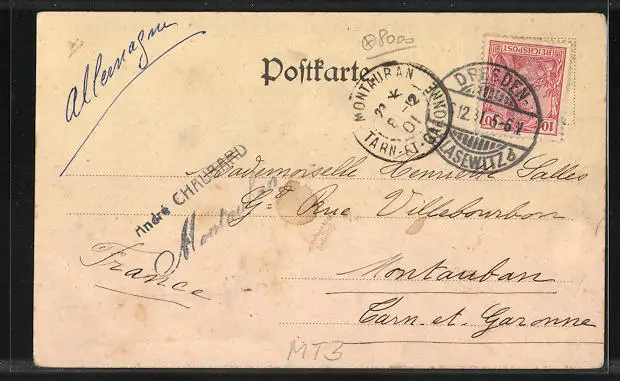 Allemagne
⊕8000
Postkarte
MONTAUBAN
TARN-ET-GARONNE
DRESDEN
BLASEWITZ
5-6 N
REICHSPOST
10
Mademoiselle Henriette Salles
André CHAUBARD
Gde Rue Villebourbon
Montauban
France
Montauban
Tarn et Garonne
MT3